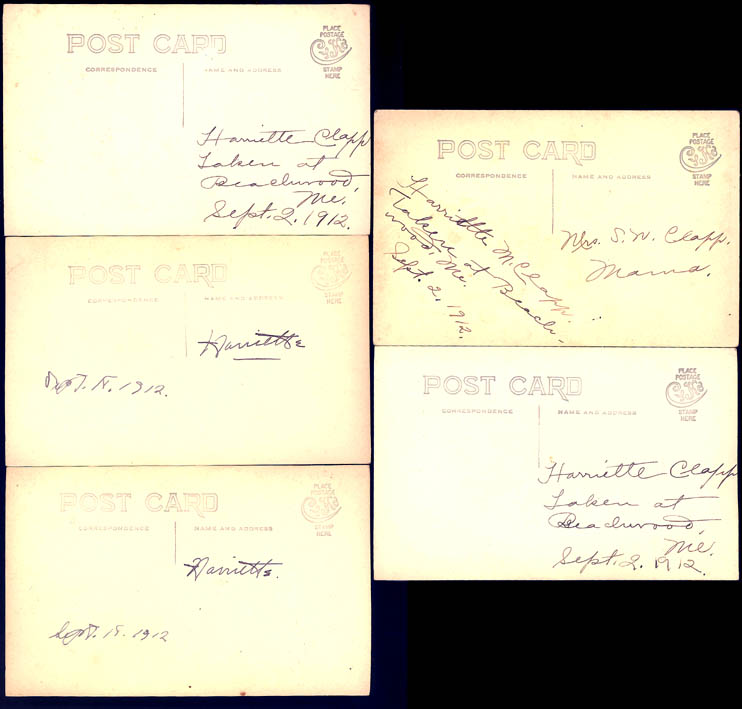 POST CARD
PLACE
POSTAGE
STAMP
HERE
CORRESPONDENCE
NAME AND ADDRESS
Harriette Clapp
Taken at
Beachwood,
Me.
Sept. 2, 1912.
POST CARD
PLACE
POSTAGE
STAMP
HERE
CORRESPONDENCE
NAME AND ADDRESS
Harriette
Sept. 1912.
POST CARD
PLACE
POSTAGE
STAMP
HERE
CORRESPONDENCE
NAME AND ADDRESS
Harriette.
Sept. 1912
POST CARD
PLACE
POSTAGE
STAMP
HERE
CORRESPONDENCE
NAME AND ADDRESS
Harriette M. Clapp.
Taken at Beach-
wood, Me.
Sept. 2, 1912.
Mrs. S. W. Clapp.
Mama.
POST CARD
PLACE
POSTAGE
STAMP
HERE
CORRESPONDENCE
NAME AND ADDRESS
Harriette Clapp
Taken at
Beachwood,
Me.
Sept. 2. 1912.